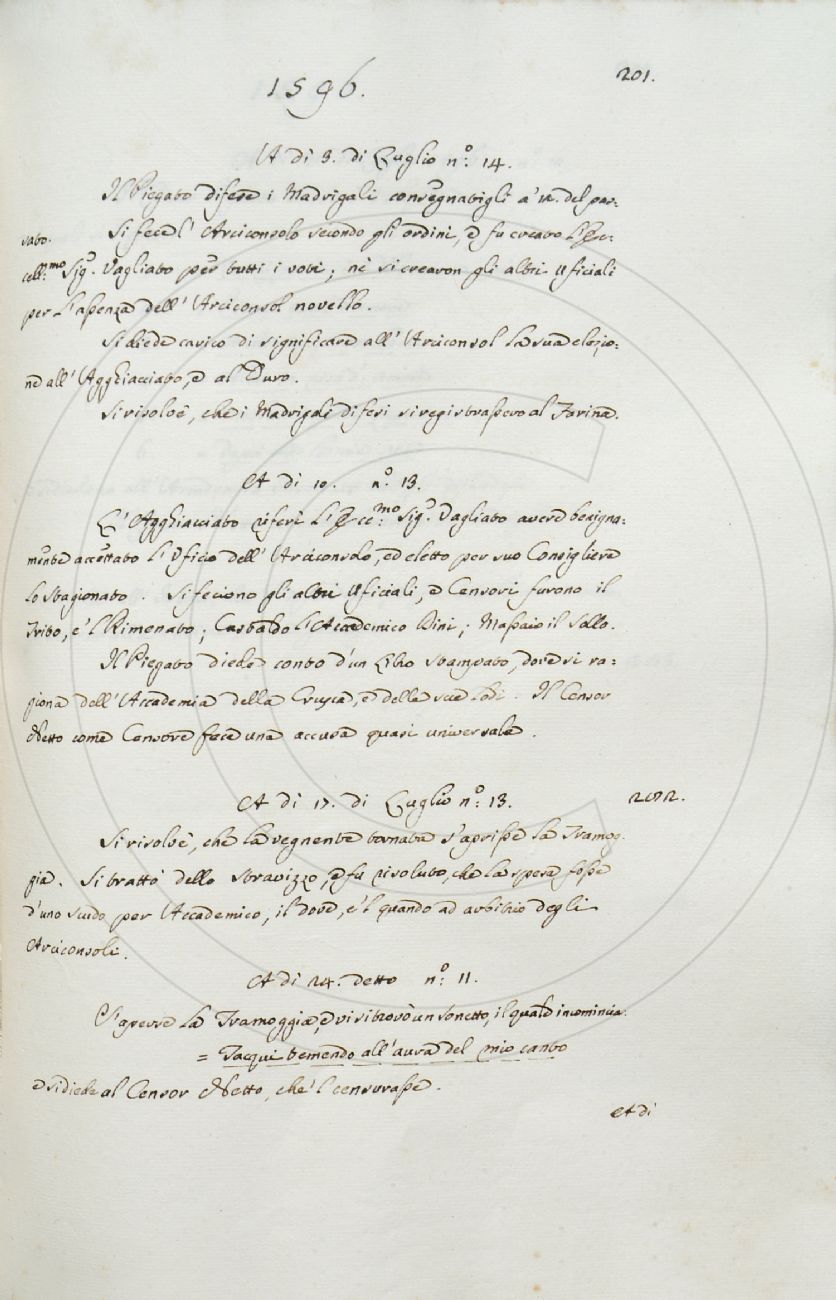 1596.
201.
A di 3. di Luglio n.° 14.
Il Piegato difese i Madrigali consegnatigli a' 12. del pas-
sato.
Si fece l'Arciconsolo secondo gli ordini, e fu creato l'Ec-
cell.mo Sig. Vagliato per tutti i voti; nè si crearon gli altri Uficiali
per l'assenza dell'Arciconsol novello.
Si diede carico di significare all'Arciconsol la sua elezio-
ne all'Agghiacciato, e al Duro.
Si risolvè, che i Madrigali difesi si registrassero al Farina.
A di 10. n.° 13.
L'Agghiacciato riferì l'Ecc.mo Sig. Vagliato avere benigna-
mente accettato l'Uficio dell'Arciconsolo, ed eletto per suo Consigliere
lo Stagionato. Si feciono gli altri Uficiali, e Censori furono il
Trito, e 'l Rimenato; Castaldo l'Accademico Dini; Massaio il Sollo.
Il Piegato diede conto d'un Libro stampato, dove si ra-
giona dell'Accademia della Crusca, e delle sue lodi. Il Censor
Netto come Censore fece una accusa quasi universale.
A di 17. di Luglio n.° 13.
202.
Si risolvè, che la vegnente tornata s'aprisse la Tramog-
gia. Si trattò dello stravizzo, e fu risoluto, che la spesa fosse
d'uno scudo per Accademico, il dove, e 'l quando ad arbitrio degli
Arciconsoli.
A di 24. detto n.° 11.
S'aperse la Tramoggia, e vi si trovò un sonetto, il quale incomincia.
= Tacqui temendo all'aura del mio canto
e si diede al Censor Netto, che 'l censurasse.
A di